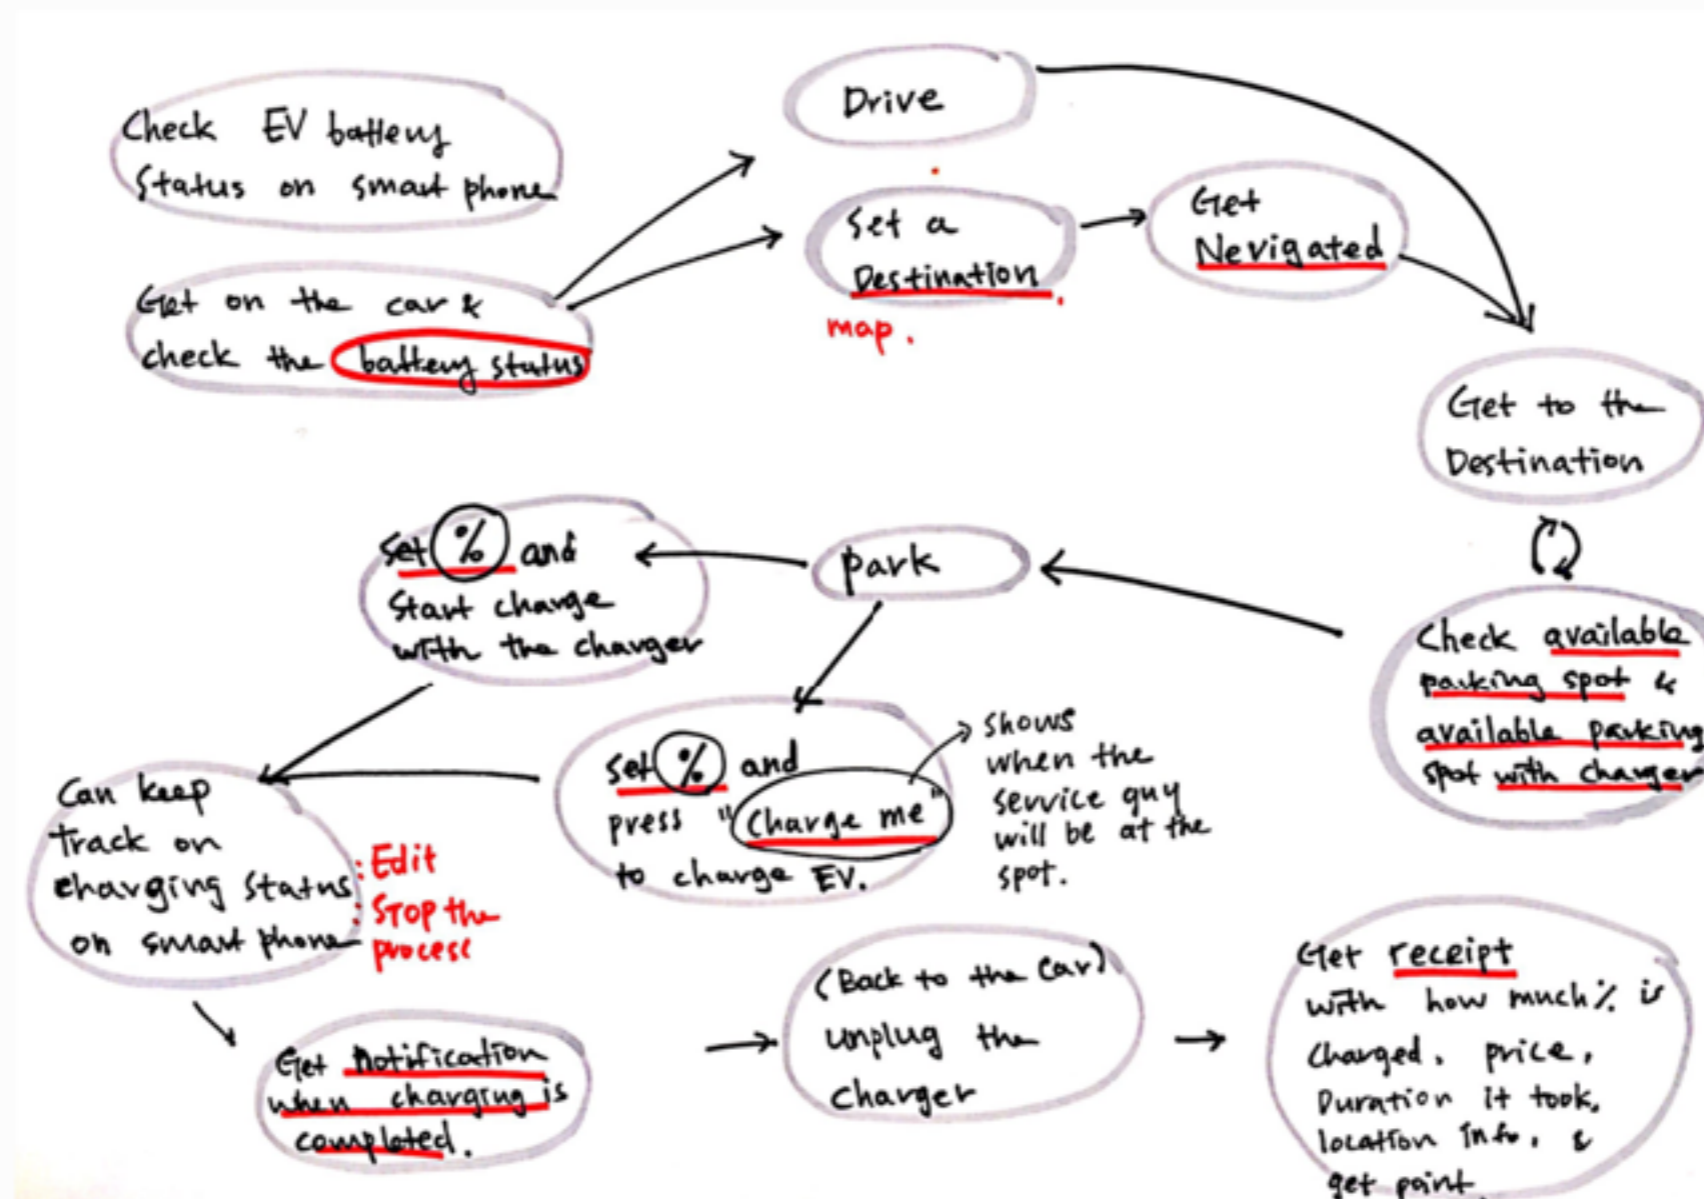 Check EV battery
Status on smart phone
Get on the car &
check the battery status
Drive
Set a
Destination.
map.
Get
Nevigated
Get to the
Destination
Check available
parking spot &
available parking
spot with charger
park
Set % and
Start charge
with the charger
Set % and
press "Charge me"
to charge EV.
shows
when the
service guy
will be at the
spot.
Can keep
Track on
charging status
on smart phone
: Edit
: STOP the
process
Get Notification
when charging is
completed.
(Back to the Car)
unplug the
Charger
Get receipt
with how much % is
Charged. price.
Duration it took,
location info. &
get point